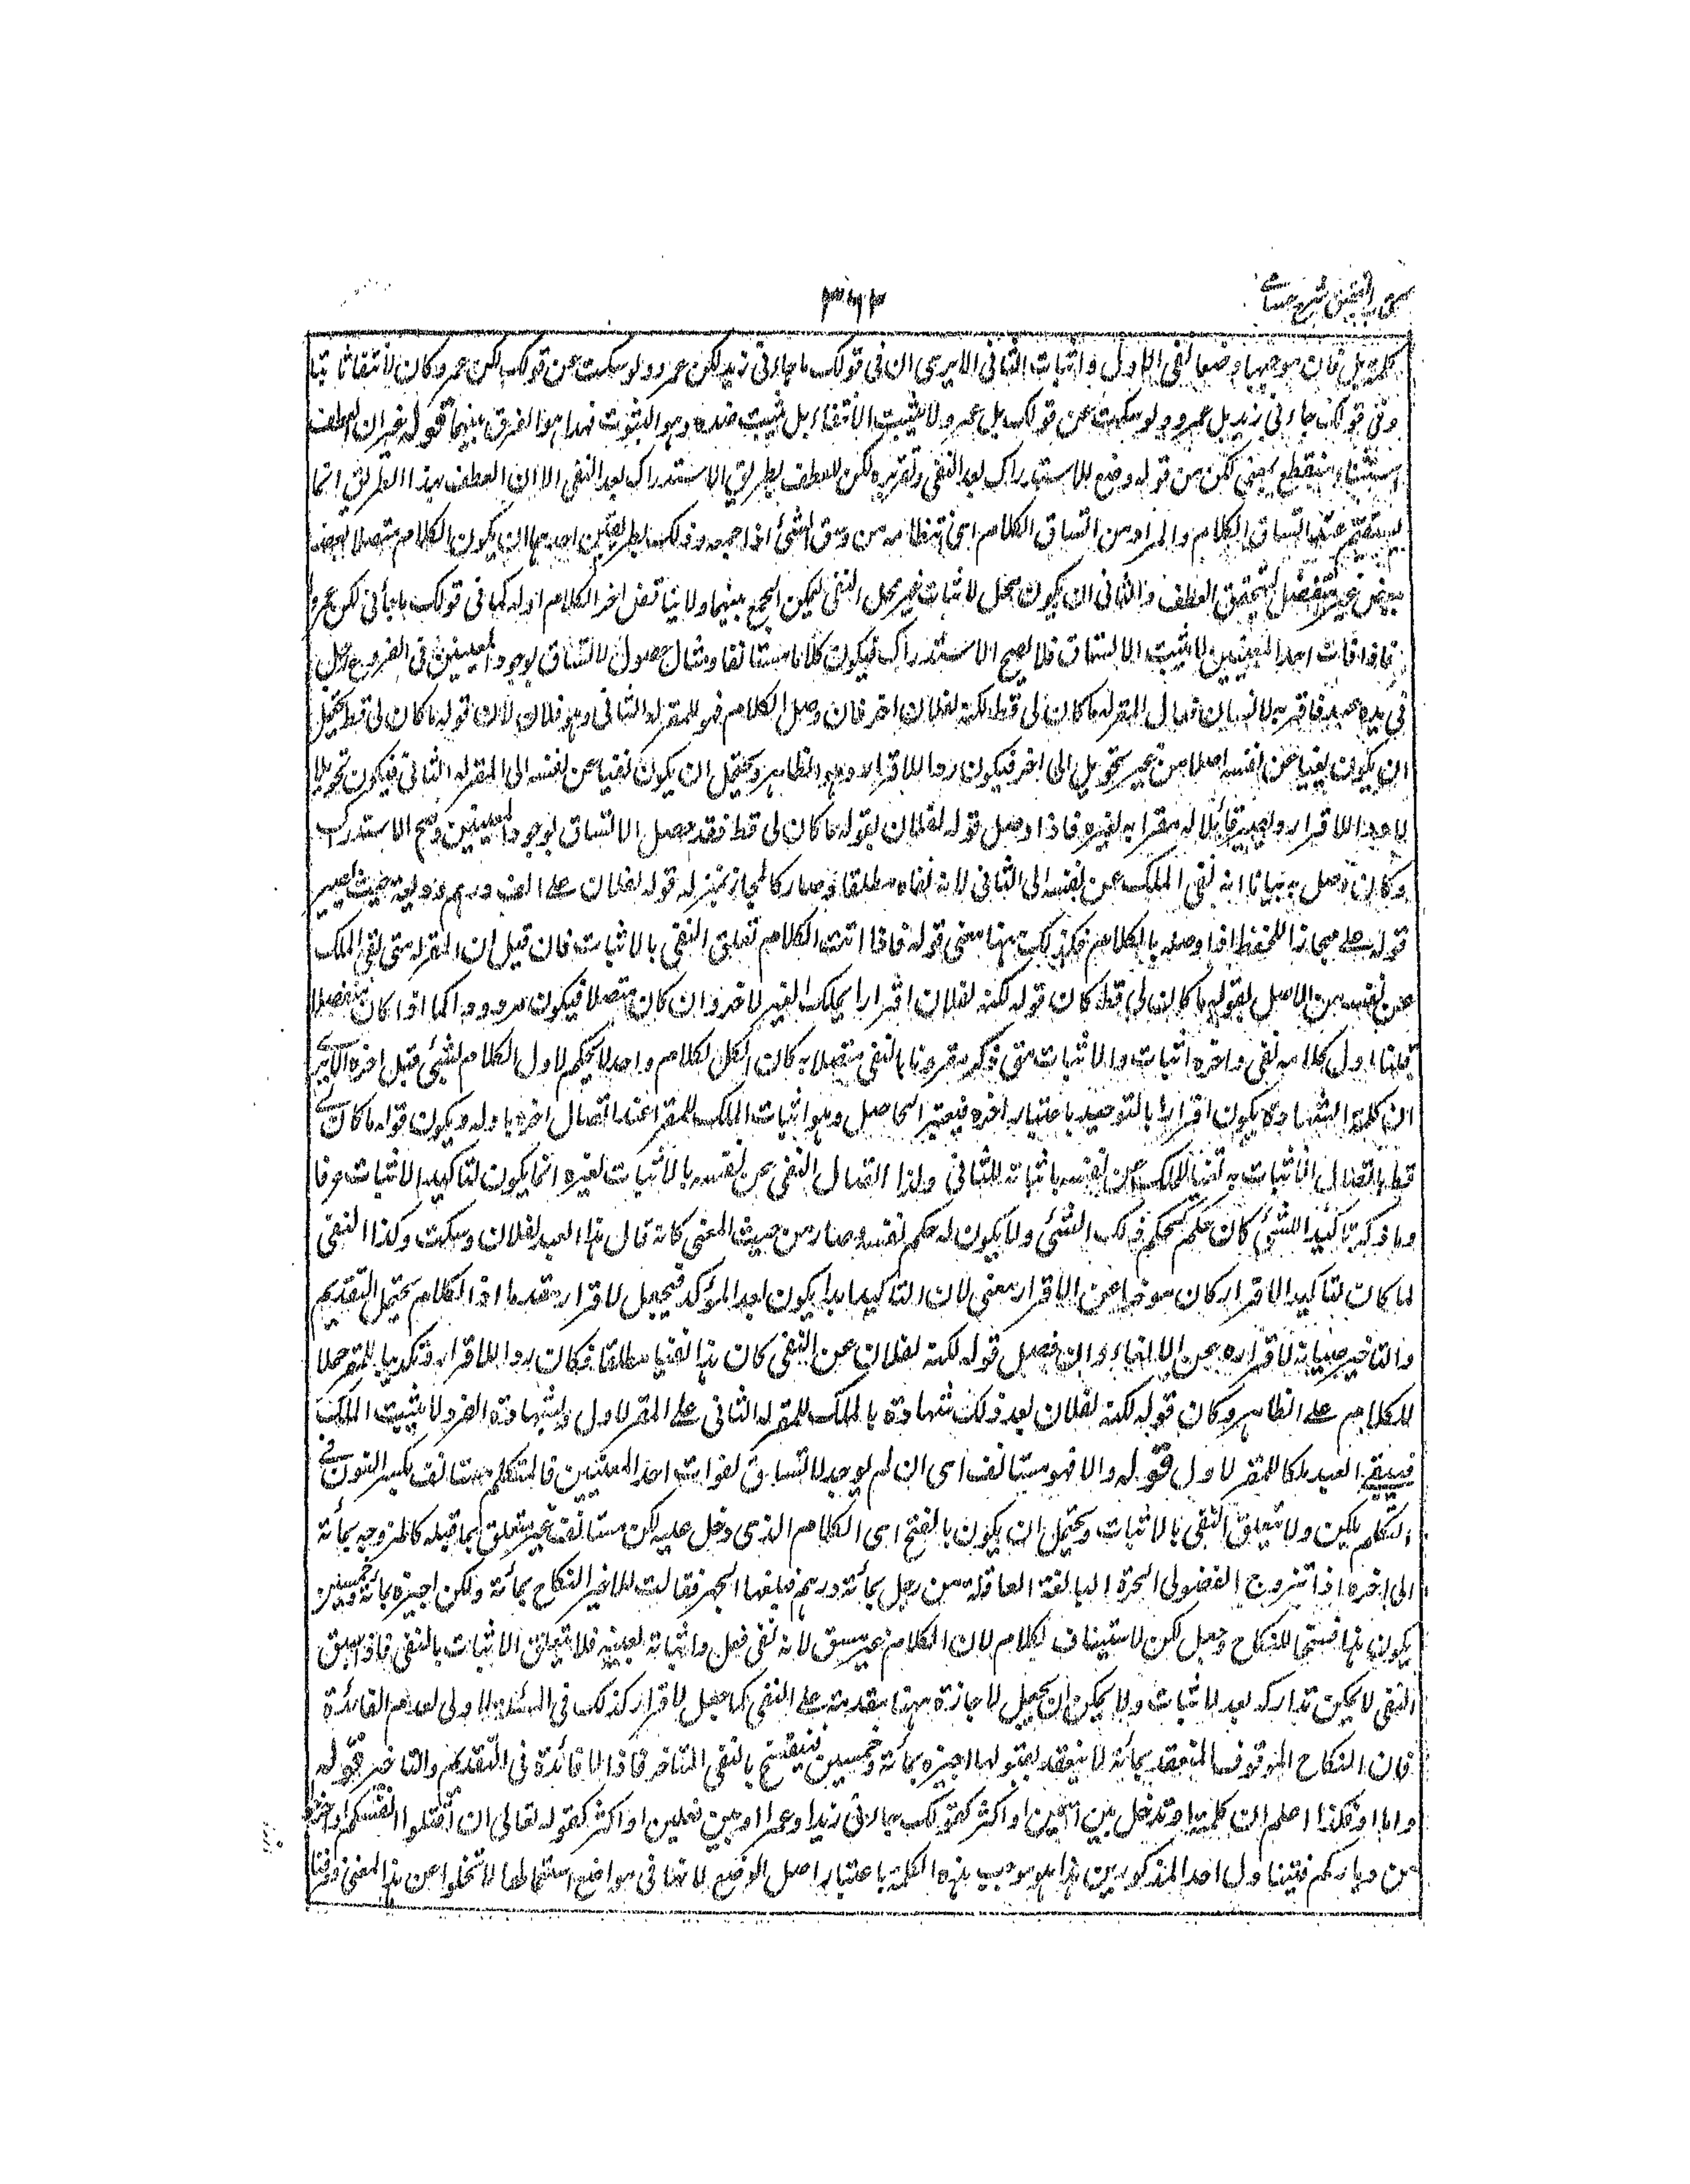 ٣٧٣
كلمة بل فان موجبها وضعا نفى الاول واثبات الثانى الا يرى ان فى قولك ما جاءنى زيد لكن عمرو ولو سكت عن قولك لكن عمرو كان الانتفاء ثابتا
وفى قولك جاءنى زيد بل عمرو ولو سكت عن قولك بل عمرو لا يثبت الانتفاء بل يثبت ضده وهو الثبوت فهذا هو الفرق بينهما قوله غير ان العطف
استثناء منقطع بمعنى لكن من قوله وضع للاستدراك بعد النفى وتقريره لكن للعطف بطريق الاستدراك بعد النفى الا ان العطف بهذا الطريق انما
يستقيم عند اتساق الكلام والمراد من اتساق الكلام اى انتظامه من وسق الشئ اذا جمعه وذلك بطريقين احدهما ان يكون الكلام متصلا بعضه
ببعض غير منفصل ليتحقق العطف والثانى ان يكون محل الاثبات غير محل النفى ليمكن الجمع بينهما ولا يناقض اخر الكلام اوله كما فى قولك ما جاءنى لكن عمرو
فاذا فات احد المعنيين لا يثبت الاتساق فلا يصح الاستدراك فيكون كلاما مستانفا ومثال حصول الاتساق لوجود المعنيين فى الفروع رجل
فى يده عبد فاقر به لانسان فقال المقر له ما كان لى قط لكنه لفلان اخر فان وصل الكلام فهو للمقر له الثانى وهو فلان لان قوله ما كان لى قط يحتمل
ان يكون نفيا عن نفسه اصلا من غير تحويل الى اخر فيكون ردا للاقرار وهو الظاهر ويحتمل ان يكون نفيا عن نفسه الى المقر له الثانى فيكون تحويلا
لا ردا للاقرار ويصير قابلا له مقرا به لغيره فاذا وصل قوله لفلان بقوله ما كان لى قط فقد حصل الاتساق لوجود المعنيين وصح الاستدراك
وكان وصل به بيانا انه نفى الملك عن نفسه الى الثانى لا انه نفاه مطلقا وصار كالمجاز بمنزلة قوله لفلان على الف درهم وديعة حيث يصير
قوله على مجازا للحفظ اذا وصله بالكلام فكذلك ههنا معنى قوله فاذا اتسق الكلام تعلق النفى بالاثبات فان قيل ان المقر له متى نفى الملك
عن نفسه من الاصل بقوله ما كان لى قط كان قوله لكنه لفلان اقرارا بملك الغير لاخر وان كان متصلا فيكون مردودا كما اذا كان منفصلا
قلنا اول كلامه نفى واخره اثبات والاثبات متى ذكر مقرونا بالنفى متصلا به كان الكل لكلام واحد لا يحكم لاول الكلام بشئ قبل اخره الا يرى
ان كلمة الشهادة يكون اقرارا بالتوحيد باعتبار اخره فيعتبر الحاصل وهو اثبات الملك للمقر عند اتصال اخره باوله ويكون قوله ما كان لى
قط باتصال الاثبات به نفيا للملك عن نفسه باثباته للثانى ولذا اتصال النفى عن نفسه بالاثبات لغيره انما يكون لتاكيد الاثبات عرفا
وما ذكر تاكيدا للشئ كان حكمه حكم ذلك الشئ ولا يكون له حكم نفسه وصار من حيث المعنى كانه قال هذا العبد لفلان وسكت وكذا النفى
لما كان لتاكيد الاقرار كان مؤخرا عن الاقرار معنى لان التاكيد ابدا يكون بعد المؤكد فيجعل الاقرار مقدما اذ الكلام يحتمل التقديم
والتاخير صيانة لاقراره عن الالغاء وان فصل قوله لكنه لفلان عن النفى كان هذا نفيا مطلقا فكان ردا للاقرار وتكذيبا للمقر حملا
للكلام على الظاهر وكان قوله لكنه لفلان بعد ذلك شهادة بالملك للمقر له الثانى على المقر الاول وبشهادة الفرد لا يثبت الملك
فيبقى العبد ملكا للمقر الاول قوله والا فهو مستانف اى ان لم يوجد الاتساق لفوات احد المعنيين فالمتكلم مستانف بكسر النون فى
التكلم بلكن ولا تعلق النفى بالاثبات ويحتمل ان يكون بالفتح اى الكلام الذى دخل عليه لكن مستانف غير متعلق بما قبله كالمزوجة بمائة
الى اخره اذا تزوج الفضولى الحرة البالغة العاقلة من رجل بمائة درهم فبلغها الخبر فقالت لا اجيز النكاح بمائة ولكن اجيزه بمائة وخمسين
يكون هذا فسخا للنكاح وجعل لكن لاستيناف الكلام لان الكلام غير متسق لانه نفى فعل واثباته بعينه فلا يتعلق الاثبات بالنفى فاذا سبق
النفى لا يمكن تداركه بعد الاثبات ولا يمكن ان يجعل الاجازة ههنا مقدمة على النفى كما جعل الاقرار كذلك فى المسئلة الاولى لعدم الفائدة
فان النكاح الموقوف المنعقد بمائة لا ينعقد بقولها اجيزه بمائة وخمسين فينفسخ بالنفى المتاخر فاذا لا فائدة فى التقديم والتاخير قوله
واما او فكذا اعلم ان كلمة او تدخل بين اسمين او اكثر كقولك جاءنى زيد او عمرو او بين فعلين او اكثر كقوله تعالى ان اقتلوا انفسكم او اخرجوا
من دياركم فيتناول احد المذكورين هذا هو موجب هذه الكلمة باعتبار اصل الوضع لانها فى مواضع استعمالها لا تخلوا عن هذا المعنى